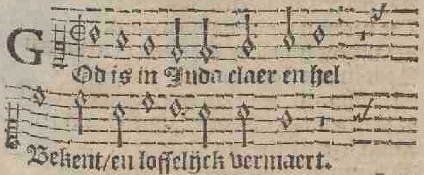 GOd is in Juda claer en hel
Bekent/en loffelijck vermaert.